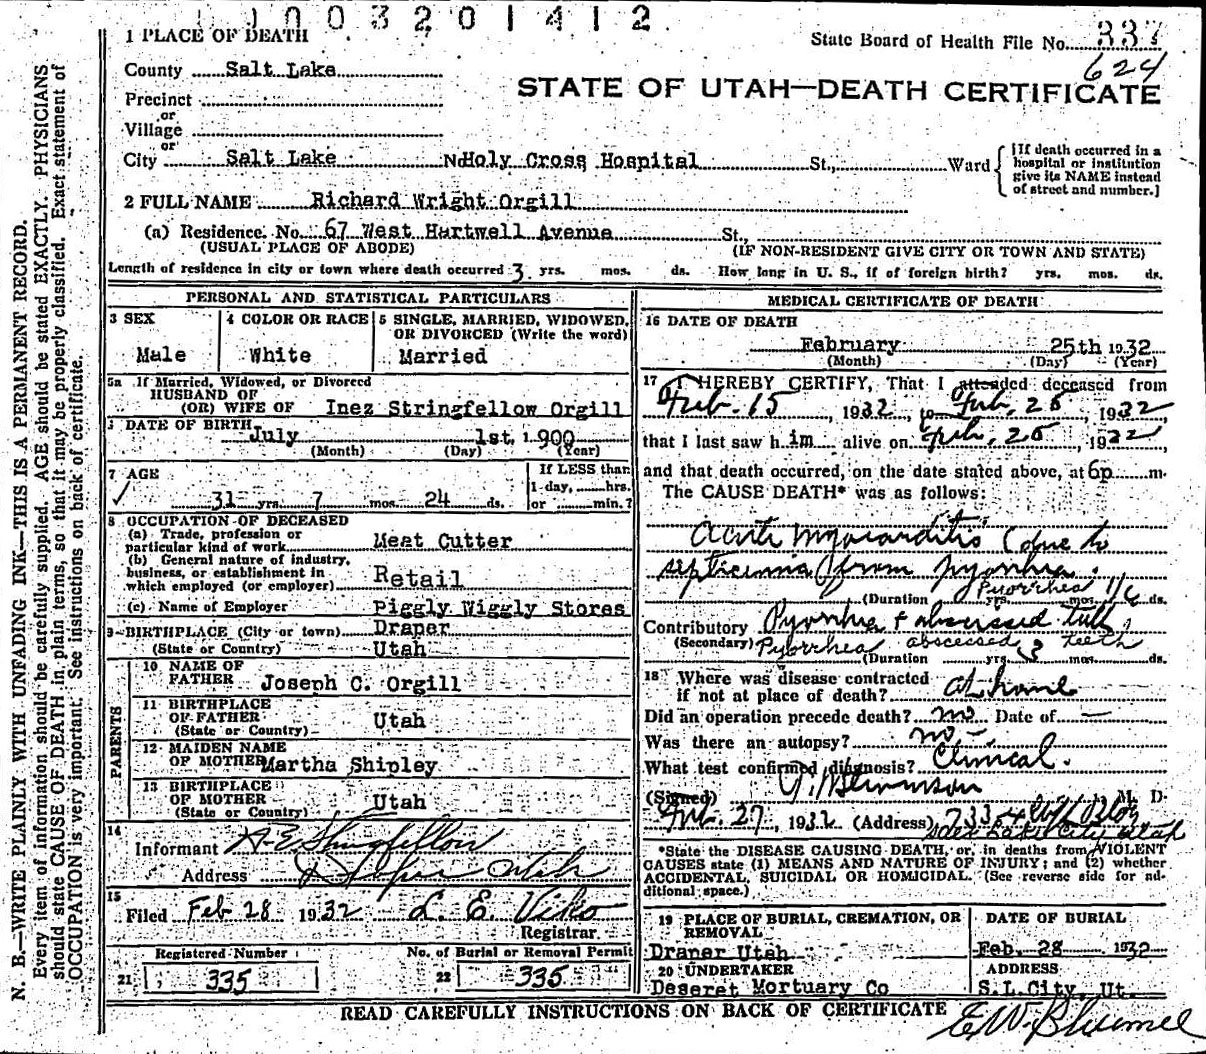 1003201412
1 PLACE OF DEATH
State Board of Health File No. 337
624
County Salt Lake
STATE OF UTAH—DEATH CERTIFICATE
Precinct
or
Village
or
City Salt Lake No Holy Cross Hospital St., Ward
[If death occurred in a hospital or institution give its NAME instead of street and number.]
2 FULL NAME Richard Wright Orgill
(a) Residence. No. 67 West Hartwell Avenue St.,
(USUAL PLACE OF ABODE) (IF NON-RESIDENT GIVE CITY OR TOWN AND STATE)
Length of residence in city or town where death occurred 3 yrs. mos. ds. How long in U. S., if of foreign birth? yrs. mos. ds.
PERSONAL AND STATISTICAL PARTICULARS
3 SEX
Male
4 COLOR OR RACE
White
5 SINGLE, MARRIED, WIDOWED, OR DIVORCED (Write the word)
Married
5a If Married, Widowed, or Divorced
HUSBAND OF
(OR) WIFE OF Inez Stringfellow Orgill
DATE OF BIRTH July 1st, 1900
(Month) (Day) (Year)
7 AGE
31 yrs. 7 mos. 24 ds.
If LESS than
1 day, hrs.
or min.?
8 OCCUPATION OF DECEASED
(a) Trade, profession or
particular kind of work Meat Cutter
(b) General nature of industry,
business, or establishment in
which employed (or employer) Retail
(c) Name of Employer Piggly Wiggly Stores
9 BIRTHPLACE (City or town) Draper
(State or Country) Utah
PARENTS
10 NAME OF
FATHER Joseph C. Orgill
11 BIRTHPLACE
OF FATHER Utah
(State or Country)
12 MAIDEN NAME
OF MOTHER Martha Shipley
13 BIRTHPLACE
OF MOTHER Utah
(State or Country)
14
Informant A E Stringfellow
Address Draper Utah
15
Filed Feb 28 1932 L. E. Viko
Registrar.
Registered Number No. of Burial or Removal Permit
21 335 22 335
MEDICAL CERTIFICATE OF DEATH
16 DATE OF DEATH
February 25th 1932
(Month) (Day) (Year)
17 I HEREBY CERTIFY, That I attended deceased from
Feb. 15, 1932, to Feb. 25, 1932
that I last saw him alive on Feb. 25, 1932
and that death occurred, on the date stated above, at 6p m.
The CAUSE DEATH* was as follows:
Acute myocarditis (due to
septicemia from pyorrhea.
Pyorrhea
(Duration yrs. mos. ds.
Contributory Pyorrhea + abscessed teeth
(Secondary) Pyorrhea abscessed teeth
(Duration yrs. 3 mos. ds.
18 Where was disease contracted
if not at place of death? at home
Did an operation precede death? no Date of —
Was there an autopsy? no -
What test confirmed diagnosis? Clinical.
(Signed) M. D.
Feb. 27, 1932 (Address)
Salt Lake City Utah
*State the DISEASE CAUSING DEATH, or, in deaths from VIOLENT
CAUSES state (1) MEANS AND NATURE OF INJURY; and (2) whether
ACCIDENTAL, SUICIDAL OR HOMICIDAL. (See reverse side for ad-
ditional space.)
19 PLACE OF BURIAL, CREMATION, OR REMOVAL
Draper Utah
DATE OF BURIAL
Feb. 28 1932
20 UNDERTAKER
Deseret Mortuary Co
ADDRESS
S.L.City, Ut.
READ CAREFULLY INSTRUCTIONS ON BACK OF CERTIFICATE
N. B.—WRITE PLAINLY WITH UNFADING INK—THIS IS A PERMANENT RECORD.
Every item of information should be carefully supplied. AGE should be stated EXACTLY. PHYSICIANS
should state CAUSE OF DEATH in plain terms, so that it may be properly classified. Exact statement of
OCCUPATION is very important. See instructions on back of certificate.